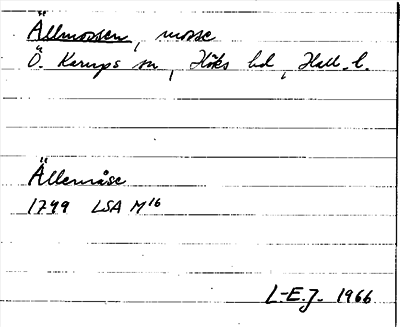 Ällmossen, mosse
Ö. Karups sn, Höks hd, Hall. l.
Ällemåse
1799 LSA M16
L-E.J. 1966